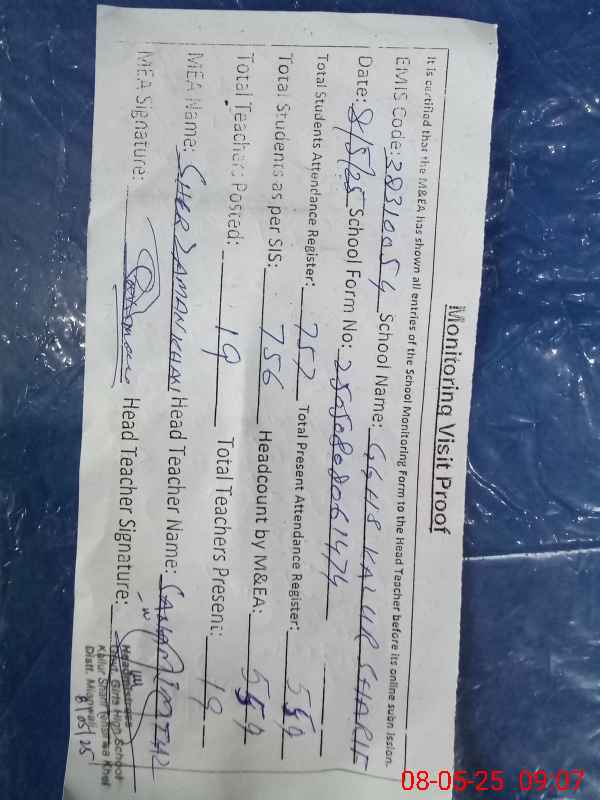 Monitoring Visit Proof
It is certified that the M&EA has shown all entries of the School Monitoring Form to the Head Teacher before its online submission.
EMIS Code: 38310054 School Name: GGHS KALUR SHARIF
Date: 8/5/25 School Form No: 25050808061474
Total Students Attendance Register: 757 Total Present Attendance Register: 559
Total Students as per SIS: 756 Headcount by M&EA: 559
Total Teachers Posted: 19 Total Teachers Present: 19
MEA Name: SHER ZAMAN KHAN Head Teacher Name:
MEA Signature: Head Teacher Signature:
Headmistress
Govt. Girls High School
Kalur Sharif
Distt. Mianwali
8/05/25
08-05-25 09:07